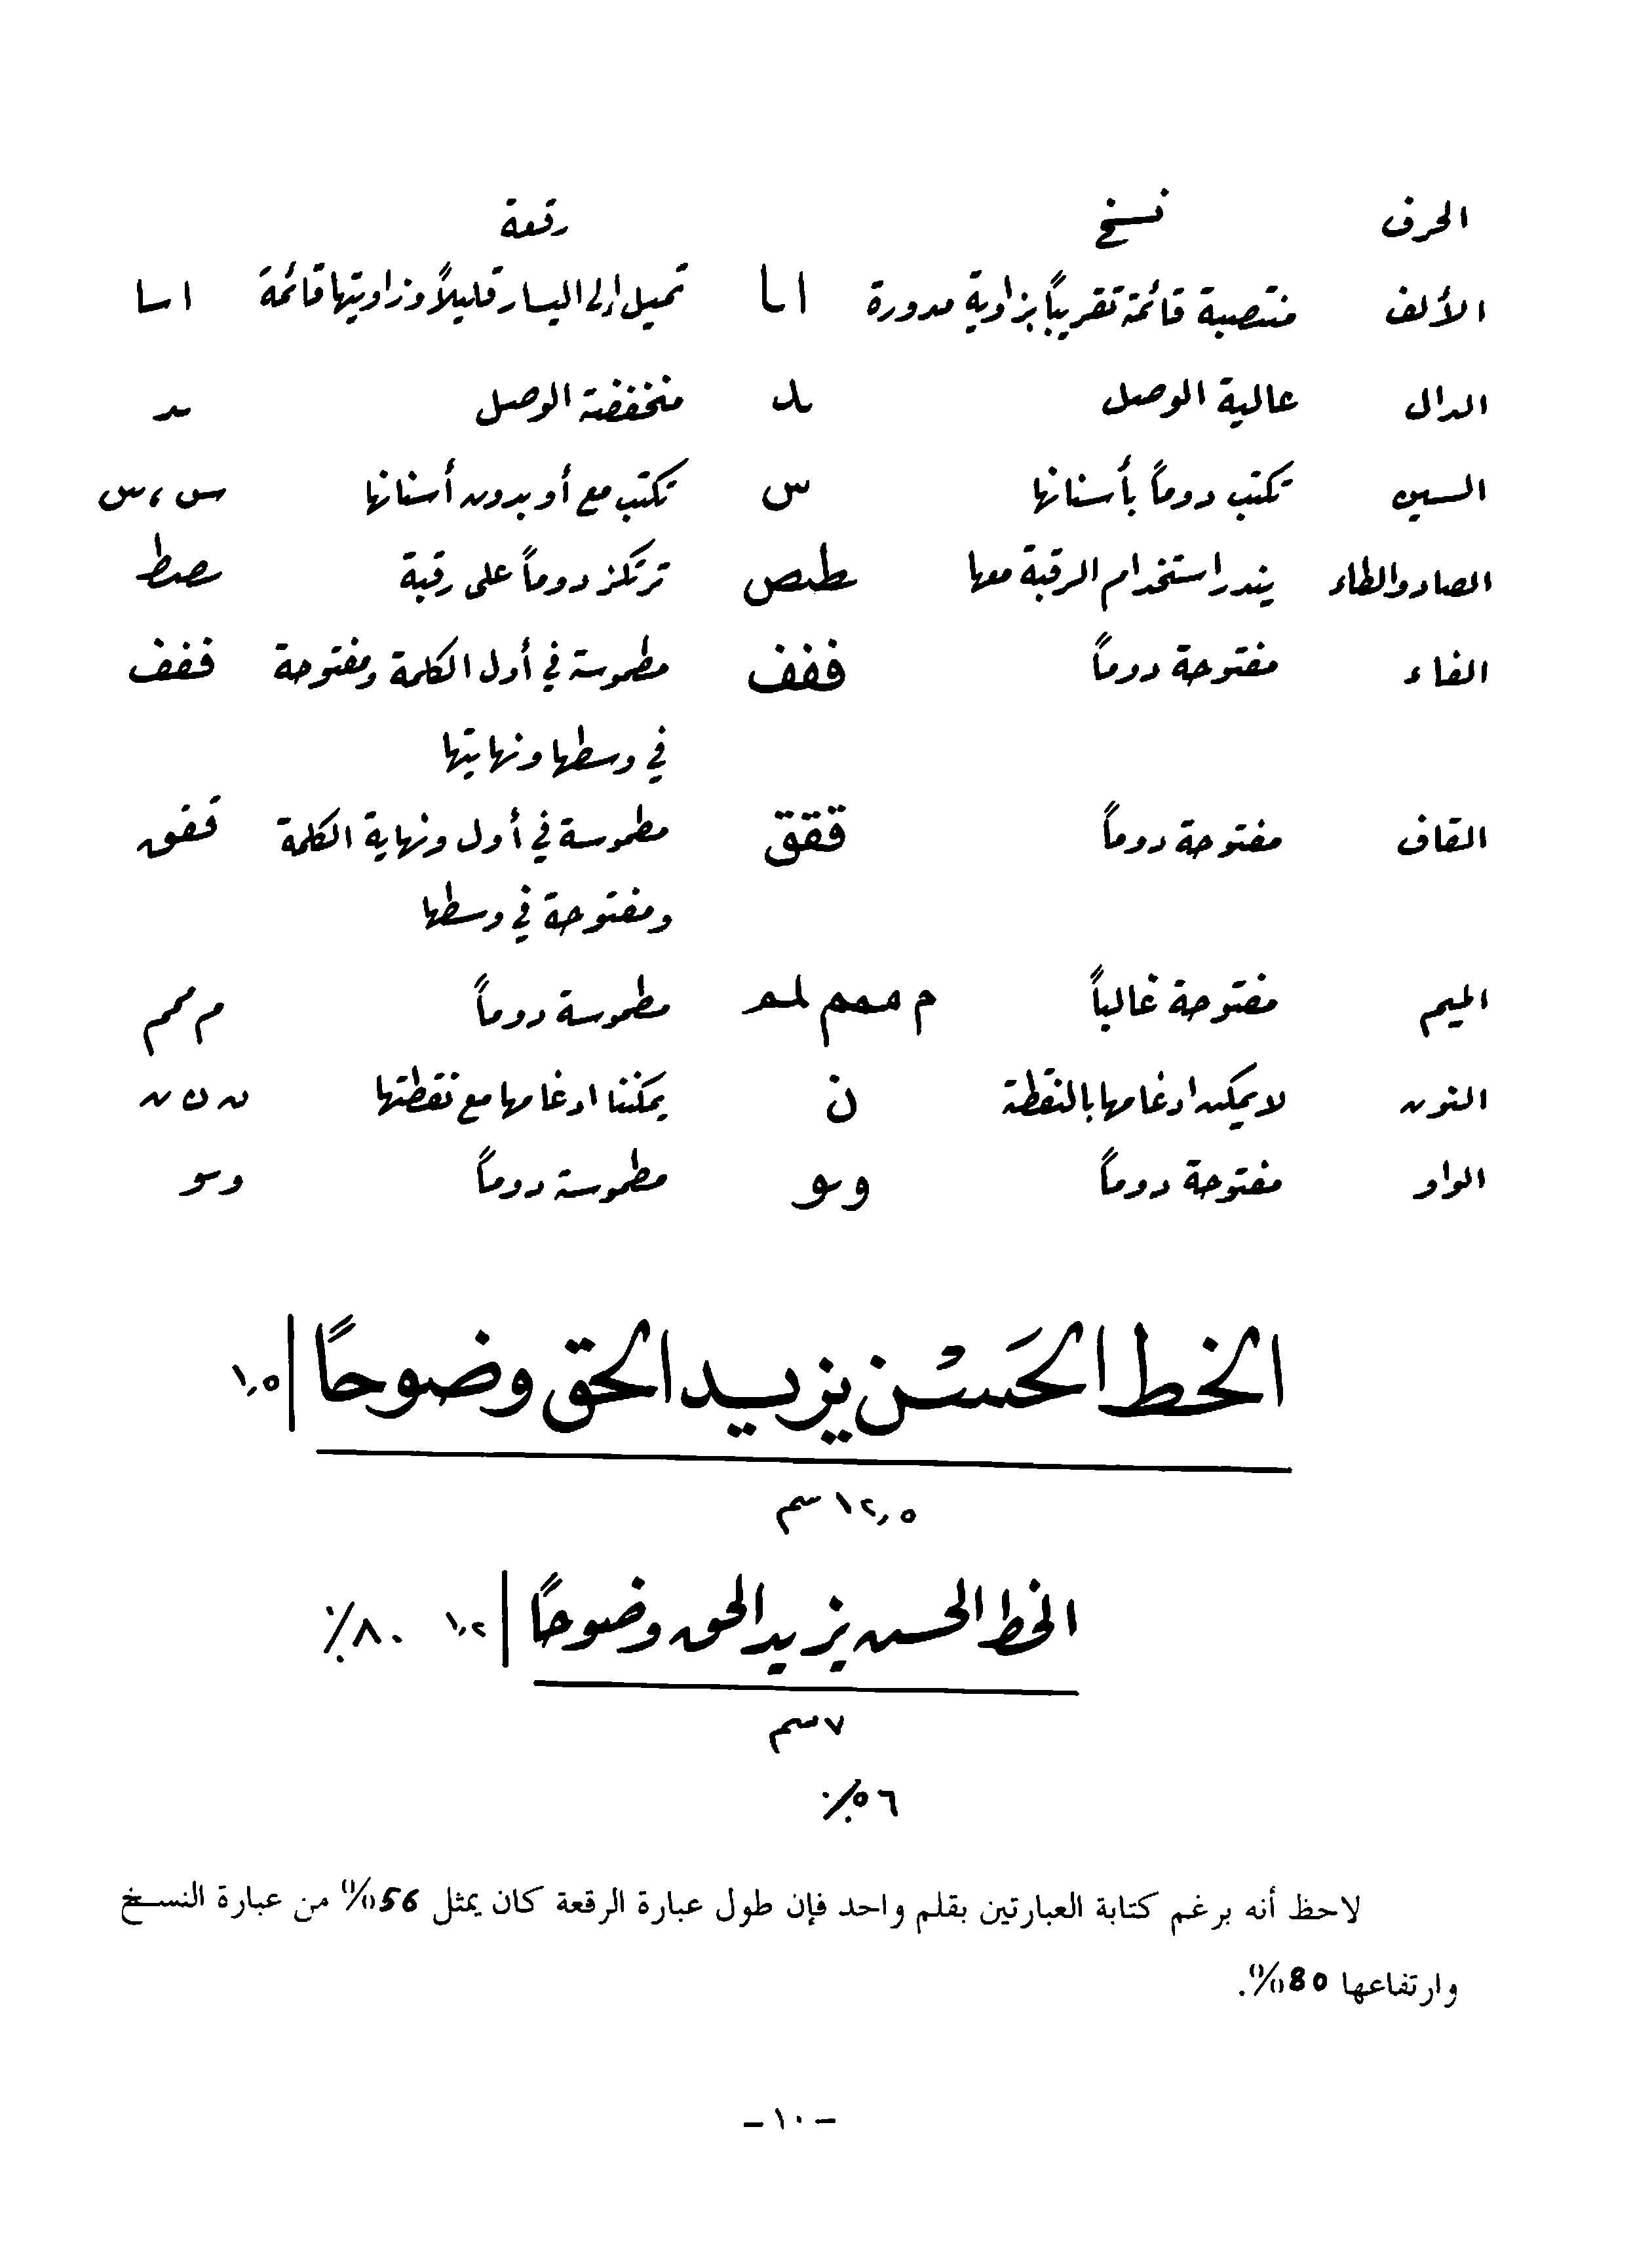 الحرف نسخ رقعة
الألف منتصبة قائمة تقريباً بزاوية مدورة ا ـا تميل إلى اليسار قليلاً وزاويتها قائمة ا سا
الدال عالية الوصل ـد منخفضة الوصل ـد
السين تكتب دوماً بأسنانها س تكتب مع أو بدون أسنانها س، س
الصاد والطاء يندر استخدام الرقبة معها ـطـص ترتكز دوماً على رقبة ـصـط
الفاء مفتوحة دوماً ففف مطموسة في أول الكلمة ومفتوحة ففف
في وسطها ونهايتها
القاف مفتوحة دوماً ققق مطموسة في أول ونهاية الكلمة ققق
ومفتوحة في وسطها
الميم مفتوحة غالباً م ممم لمـ مطموسة دوماً م ممم
النون لا يمكن ادغامها بالنقطة ن يمكننا ادغامها مع نقطتها ن ن ن
الواو مفتوحة دوماً و ـو مطموسة دوماً و ـو
الخط الحَسْن يزيد الحق وضوحاً ١,٥
١٢,٥ سم
الخط الحسن يزيد الحق وضوحاً ١,٢ ٨٠٪
٧ سم
٥٦٪
لاحظ أنه برغم كتابة العبارتين بقلم واحد فإن طول عبارة الرقعة كان يمثل 56% من عبارة النسخ
وارتفاعها 80%.
- ١٠ -